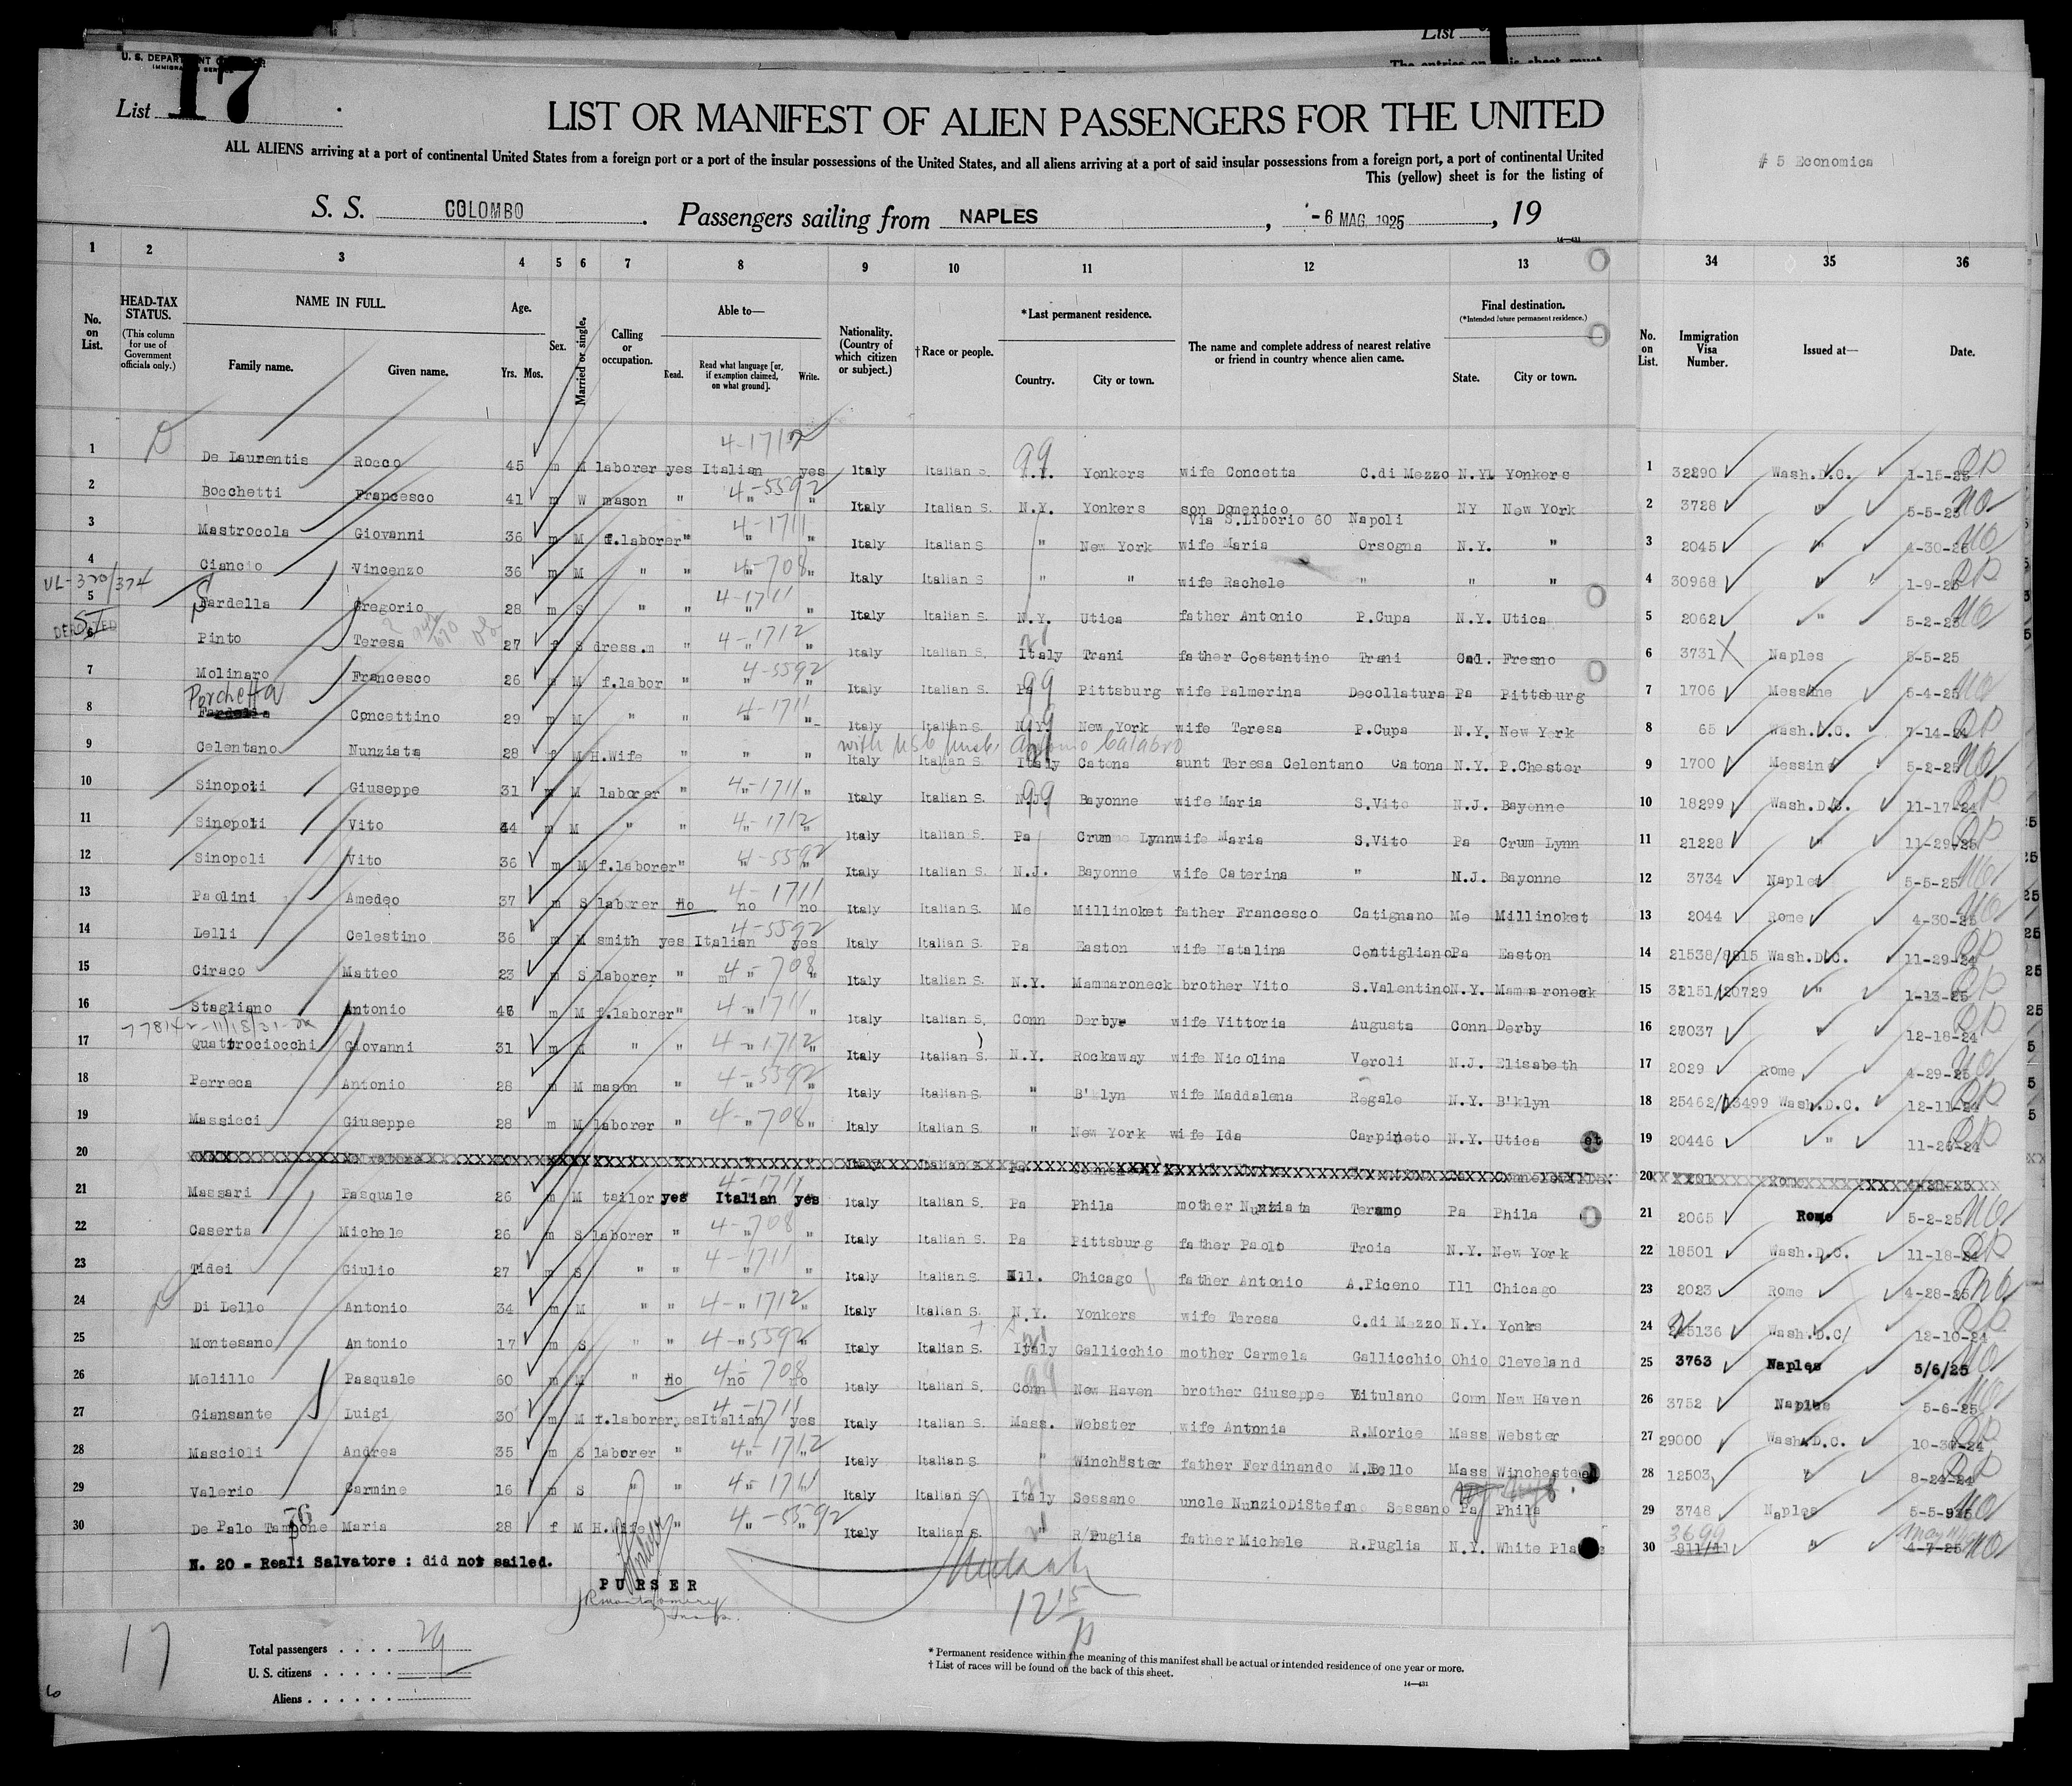 List
U. S. DEPARTMENT OF
IMMIGRATION SERVICE
List 17
LIST OR MANIFEST OF ALIEN PASSENGERS FOR THE UNITED
ALL ALIENS arriving at a port of continental United States from a foreign port or a port of the insular possessions of the United States, and all aliens arriving at a port of said insular possessions from a foreign port, a port of continental United
This (yellow) sheet is for the listing of
# 5 Economica
S. S. COLOMBO. Passengers sailing from NAPLES, -6 MAG 1925, 19
14—431
1 2 3 4 5 6 7 8 9 10 11 12 13 34 35 36
No. on List.
HEAD-TAX STATUS.
(This column for use of Government officials only.)
NAME IN FULL.
Family name. Given name.
Age.
Yrs. Mos.
Sex.
Married or single.
Calling or occupation.
Able to—
Read. Read what language [or, if exemption claimed, on what ground]. Write.
Nationality. (Country of which citizen or subject.)
†Race or people.
*Last permanent residence.
Country. City or town.
The name and complete address of nearest relative or friend in country whence alien came.
Final destination.
(*Intended future permanent residence.)
State. City or town.
No. on List.
Immigration Visa Number.
Issued at—
Date.
4-1712
1 De Laurentis Rocco 45 m M laborer yes Italian yes Italy Italian S. N.Y. Yonkers wife Concetta C.di Mezzo N.Y. Yonkers 1 32290 Wash.D.C. 1-15-25
2 Bocchetti Francesco 41 m W mason " 4-5592 " Italy Italian S. N.Y. Yonkers son Domenico Via S.Liborio 60 Napoli NY New York 2 3728 " 5-5-25
3 Mastrocola Giovanni 36 m M f.laborer " 4-1711 " Italy Italian S " New York wife Maria Orsogna N.Y. " 3 2045 " 4-30-25
4 Ciancio Vincenzo 36 m M " " 4-708 " Italy Italian S " " wife Rachele " " " 4 30968 " 1-9-25
VL-370/374
5 Sardella Gregorio 28 m S " " 4-1711 " Italy Italian S N.Y. Utica father Antonio P.Cupa N.Y. Utica 5 2062 " 5-2-25
DEPORTED SI
6 Pinto Teresa 27 f S dress.m " 4-1712 " Italy Italian S. Italy Trani father Costantino Trani Cad. Fresno 6 3731 X Naples 5-5-25
7 Molinaro Francesco 26 m M f.labor " 4-5592 " Italy Italian S. Pa Pittsburg wife Palmerina Decollatura Pa Pittsburg 7 1706 Messine 5-4-25
Porchetta
8 Fardella Concettino 29 m M " " 4-1711 " Italy Italian S. N.Y. New York wife Teresa P.Cupa N.Y. New York 8 65 Wash.D.C. 7-14-24
with USC husb. Antonio Calabro
9 Celentano Nunziata 28 f M H.Wife " " " Italy Italian S. Italy Catona aunt Teresa Celentano Catona N.Y. P.Chester 9 1700 Messina 5-2-25
10 Sinopoli Giuseppe 31 m M laborer " 4-1711 " Italy Italian S. N.J. Bayonne wife Maria S.Vito N.J. Bayonne 10 18299 Wash.D.C. 11-17-24
11 Sinopoli Vito 44 m M " " 4-1712 " Italy Italian S. Pa Crum Lynn wife Maria S.Vito Pa Crum Lynn 11 21228 " 11-29-25
12 Sinopoli Vito 36 m M f.laborer " 4-5592 " Italy Italian S. N.J. Bayonne wife Caterina " N.J. Bayonne 12 3734 Naples 5-5-25
13 Paolini Amedeo 37 m S laborer No 4-1711 no no Italy Italian S. Me Millinoket father Francesco Catignano Me Millinoket 13 2044 Rome 4-30-25
14 Lelli Celestino 36 m M smith yes 4-5592 Italian yes Italy Italian S. Pa Easton wife Natalina Contigliano Pa Easton 14 21538/8815 Wash.D.C. 11-29-24
15 Ciraco Matteo 23 m S laborer " 4-708 " Italy Italian S. N.Y. Mammaroneck brother Vito S.Valentino N.Y. Mammaroneck 15 32151/20729 " 1-13-25
16 Stagliano Antonio 46 m M f.laborer " 4-1711 " Italy Italian S. Conn Derby wife Vittoria Augusta Conn Derby 16 27037 " 12-18-24
17 Quattrociocchi Giovanni 31 m M " " 4-1712 " Italy Italian S. N.Y. Rockaway wife Nicolina Veroli N.J. Elisabeth 17 2029 Rome 4-29-25
18 Perreca Antonio 28 m M mason " 4-5592 " Italy Italian S. " B'klyn wife Maddalena Regale N.Y. B'klyn 18 25462/13499 Wash.D.C. 12-11-24
19 Massicci Giuseppe 28 m M laborer " 4-708 " Italy Italian S. " New York wife Ida Carpineto N.Y. Utica 19 20446 " 11-25-24
20 20
21 Massari Pasquale 26 m M tailor yes 4-1711 Italian yes Italy Italian S. Pa Phila mother Nunziata Teramo Pa Phila 21 2065 Rome 5-2-25
22 Caserta Michele 26 m S laborer " 4-708 " Italy Italian S. Pa Pittsburg father Paolo Troia N.Y. New York 22 18501 Wash.D.C. 11-18-24
23 Tidei Giulio 27 m S " " 4-1711 " Italy Italian S Ill. Chicago father Antonio A.Piceno Ill Chicago 23 2023 Rome 4-28-25
24 Di Lello Antonio 34 m M " " 4-1712 " Italy Italian S. N.Y. Yonkers wife Teresa C.di Mezzo N.Y. Yonks 24 25136 Wash.D.C/ 12-10-24
25 Montesano Antonio 17 m S " " 4-5592 " Italy Italian S. Italy Gallicchio mother Carmela Gallicchio Ohio Cleveland 25 3763 Naples 5/6/25
26 Melillo Pasquale 60 m M " No 4-708 no no Italy Italian S. Conn New Haven brother Giuseppe Vitulano Conn New Haven 26 3752 Naples 5-6-25
27 Giansante Luigi 30 m M f.laborer yes 4-1711 Italian yes Italy Italian S. Mass. Webster wife Antonia R.Morice Mass Webster 27 29000 Wash.D.C. 10-30-24
28 Mascioli Andrea 35 m S laborer " 4-1712 " Italy Italian S. " Winchester father Ferdinando M.Bello Mass Winchester 28 12503 " 8-24-24
29 Valerio Carmine 16 m S " " 4-1711 " Italy Italian S Italy Sessano uncle NunzioDiStefano Sessano Pa Phila 29 3748 Naples 5-5-925
30 De Palo Tampone Maria 28 f M H.Wife " 4-5592 " Italy Italian S. " R/Puglia father Michele R.Puglia N.Y. White Plains 30 3699 " 4-7-25
N. 20 = Reali Salvatore : did not sailed.
PURSER
RMontgomery
Insp.
12 15 p
17
Total passengers . . . . 29
U. S. citizens . . . . .
Aliens . . . . . .
* Permanent residence within the meaning of this manifest shall be actual or intended residence of one year or more.
† List of races will be found on the back of this sheet.
14—431